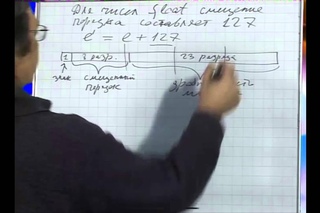 Для чисел float смещение
порядка составляет 127
e' = e + 127
1 8 разр. 23 разряда
знак смещенный
порядок